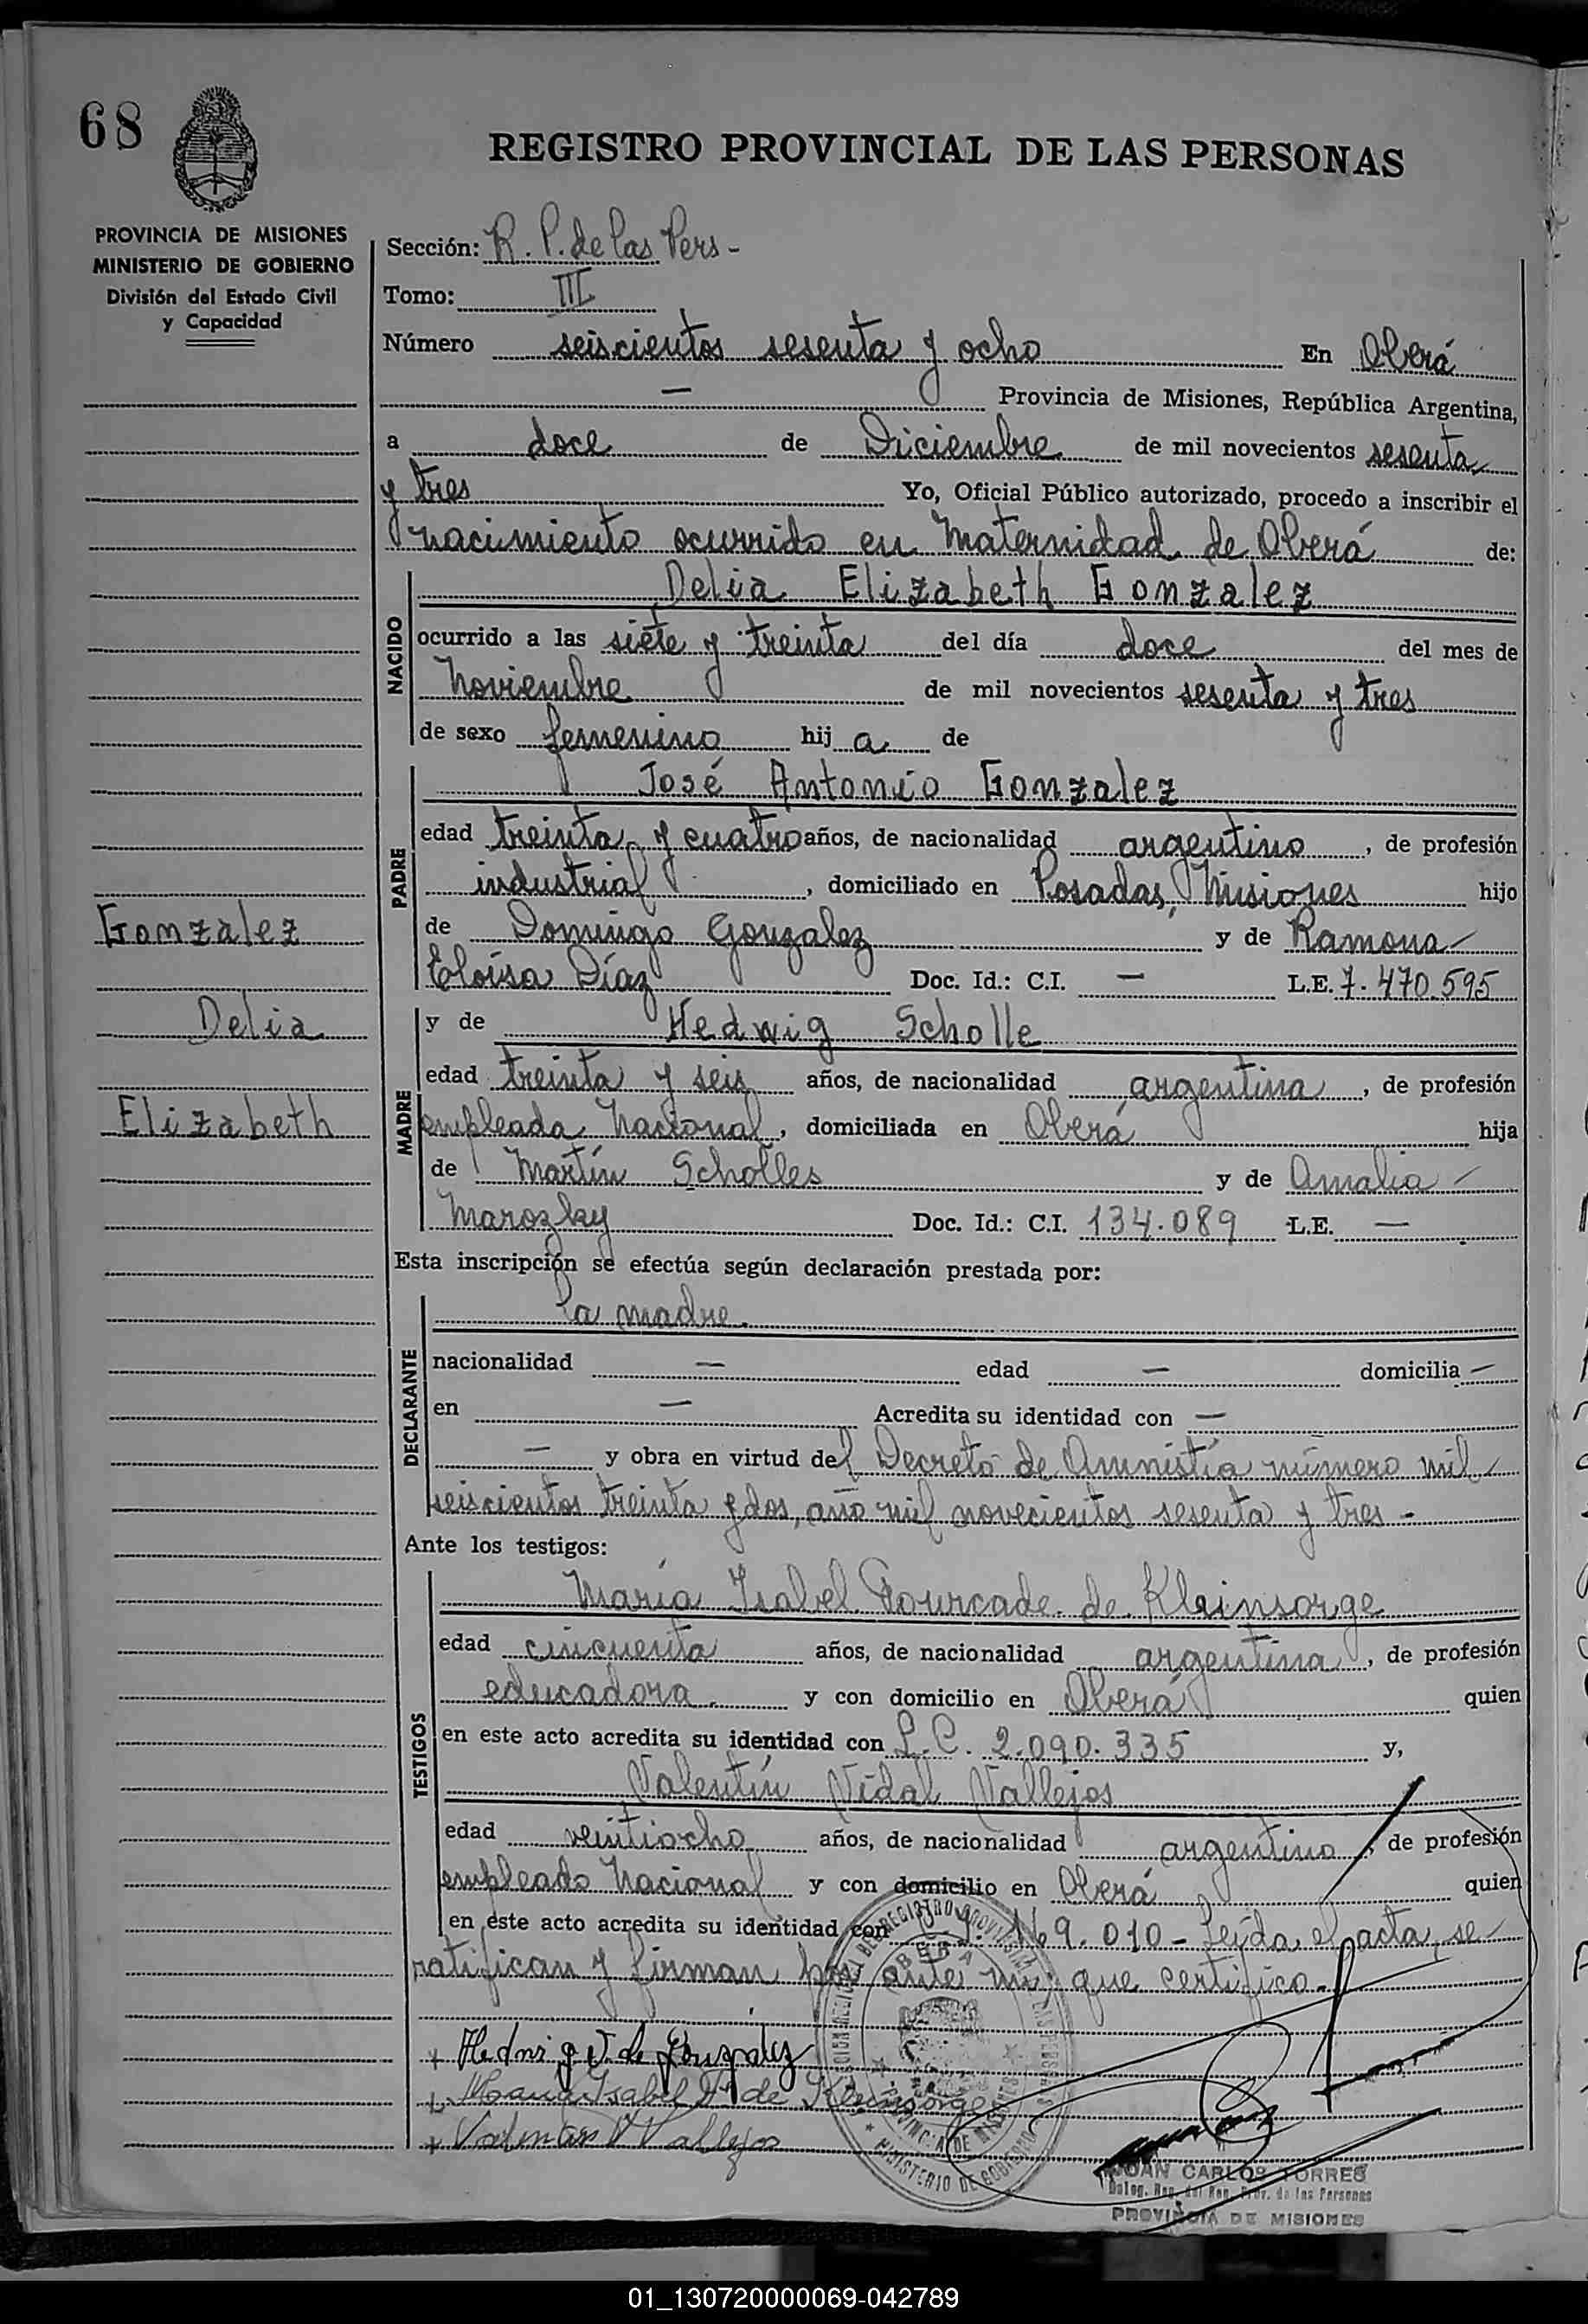 68
REGISTRO PROVINCIAL DE LAS PERSONAS
PROVINCIA DE MISIONES
MINISTERIO DE GOBIERNO
División del Estado Civil
y Capacidad
Sección: R. P. de las Pers -
Tomo: III
Número seiscientos sesenta y ocho En Oberá
— Provincia de Misiones, República Argentina,
a doce de Diciembre de mil novecientos sesenta
y tres Yo, Oficial Público autorizado, procedo a inscribir el
nacimiento ocurrido en Maternidad de Oberá de:
NACIDO
Delia Elizabeth Gonzalez
ocurrido a las siete y treinta del día doce del mes de
Noviembre de mil novecientos sesenta y tres
de sexo femenino hij a de
PADRE
José Antonio Gonzalez
edad treinta y cuatro años, de nacionalidad argentino, de profesión
industrial, domiciliado en Posadas, Misiones hijo
Gonzalez
de Domingo Gonzalez y de Ramona —
Eloísa Díaz Doc. Id.: C.I. — L.E. 7.470.595
Delia
MADRE
y de Hedwig Scholle
edad treinta y seis años, de nacionalidad argentina, de profesión
Elizabeth
empleada Nacional, domiciliada en Oberá hija
de Martín Scholles y de Amalia —
Marozky Doc. Id.: C.I. 134.089 L.E. —
Esta inscripción se efectúa según declaración prestada por:
DECLARANTE
la madre.
nacionalidad — edad — domicilia —
en — Acredita su identidad con —
— y obra en virtud del Decreto de Amnistía número mil
seiscientos treinta y dos, año mil novecientos sesenta y tres -
Ante los testigos:
TESTIGOS
María Isabel Fourcade de Kleinsorge
edad cincuenta años, de nacionalidad argentina, de profesión
educadora. y con domicilio en Oberá quien
en este acto acredita su identidad con L.C. 2.090.335 y,
Valentín Vidal Vallejos
edad veintiocho años, de nacionalidad argentino, de profesión
empleado Nacional y con domicilio en Oberá quien
en este acto acredita su identidad con 169.010 - Leída el acta, se
ratifican y firman por ante mí, que certifico.-
+ Hedwig de Gonzalez
+ Maria Isabel F. de Kleinsorge
+ Valentín V Vallejos
OBERA
PROVINCIA DE MISIONES
MINISTERIO DE GOBIERNO
JUAN CARLOS TORRES
Deleg. Reg. del Reg. Prov. de las Personas
PROVINCIA DE MISIONES
01_130720000069-042789